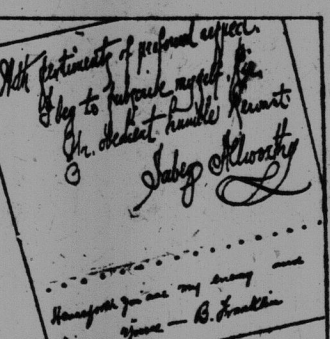 With sentiments of profound respect.
I beg to subscribe myself, Sir,
Yr. obedient humble Servant
Jabez Allworthy
Henceforth you are my enemy and
yours — B. Franklin